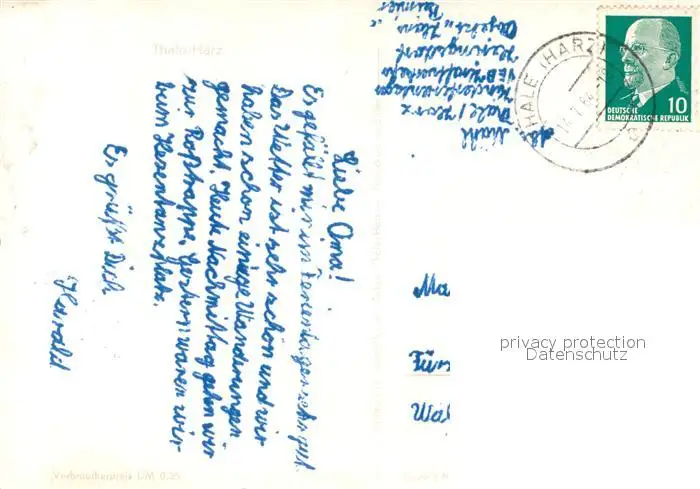 Thale/Harz
Liebe Oma!
Es gefällt mir im Ferienlager sehr gut.
Das Wetter ist sehr schön und wir
haben schon einige Wanderungen
gemacht. Heute Nachmittag gehen wir
zur Roßtrappe. Gestern waren wir
beim Hexentanzplatz.
Es grüßt Dich
Harald
Verbraucherpreis -,M 0,25
Thale / Harz
Kinderferienlager
VEB Kraftverkehr
"Hans
Beimler"
THALE (HARZ)
DEUTSCHE
DEMOKRATISCHE REPUBLIK
10
Ma
privacy protection
Datenschutz